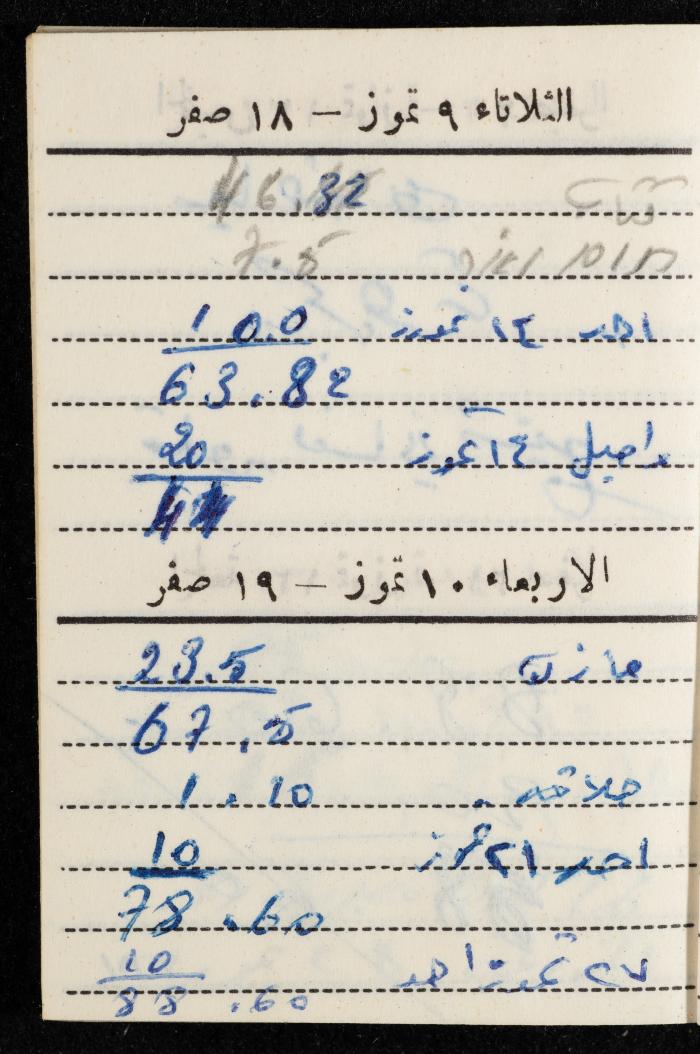 الثلاثاء ٩ تموز — ١٨ صفر
46.32
7.5
احد ١٤ تموز 10.0
63.82
واصل ١٤ تموز 20
44
الاربعاء ١٠ تموز — ١٩ صفر
مازن 23.5
67.5
حلاقه 1.10
احد ٢١ تموز 10
78.60
٢٧ تموز احد 10
88.60